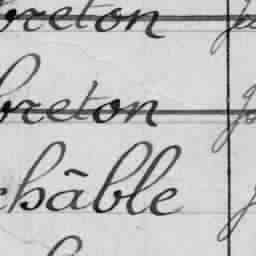 breton
breton
châble